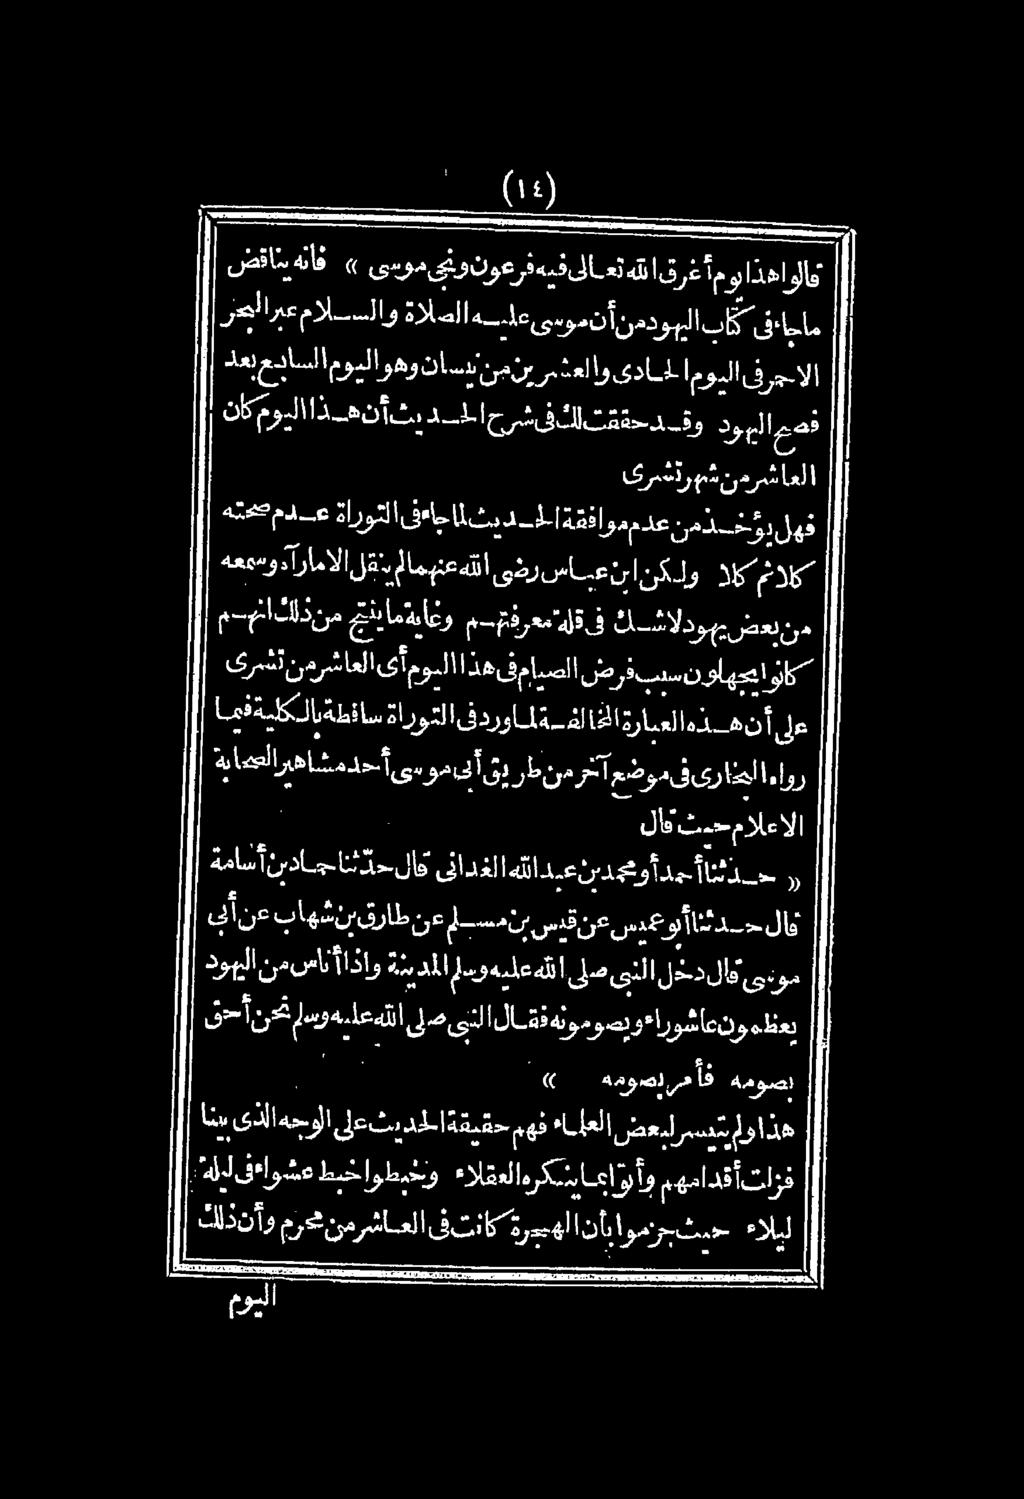 (١٤)
قالوا هذا يوم أغرق الله تعالى فيه فرعون ونجى موسى » فانه يناقض
ماجاء فى كتاب اليهود من أن موسى عليه الصلاة والسلام عبر البحر
الاحمر فى اليوم الحادى والعشرين من نيسان وهو اليوم السابع بعد
فصح اليهود وقد حققت لك فى شرح الحديث أن هذا اليوم كان
العاشر من شهر تشرى
فهل يؤخذ من عدم موافقة الحديث لما جاء فى التوراة عدم صحته
كلا ثم كلا ولكن ابن عباس رضى الله عنهما لم ينقل الا ما رآه وسمعه
من بعض يهود لا شك فى قلة معرفتهم وغاية ما ينتج من ذلك انهم
كانوا يجهلون سبب فرض الصيام فى هذا اليوم أى العاشر من تشرى
على أن هذه العبارة المخالفة لما ورد فى التوراة ساقطة بالكلية فيما
رواه البخارى فى موضع آخر من طريق أبى موسى أحد مشاهير الصحابة
الاعلام حيث قال
« حدثنا أحمد أو محمد بن عبد الله الغدانى قال حدّثنا حماد بن أسامة
قال حدثنا أبو عميس عن قيس بن مسلم عن طارق بن شهاب عن أبى
موسى قال دخل النبى صلى الله عليه وسلم المدينة واذا أناس من اليهود
يعظمون عاشوراء ويصومونه فقال النبى صلى الله عليه وسلم نحن أحق
بصومه فأمر بصومه »
هذا ولم يتيسر لبعض العلماء فهم حقيقة الحديث على الوجه الذى بينا
فزلت أقدامهم وأتوا بما ينكره العقلاء وخبطوا خبط عشواء فى ليلة
ليلاء حيث جزموا بأن الهجرة كانت فى العاشر من محرم وأن ذلك
اليوم